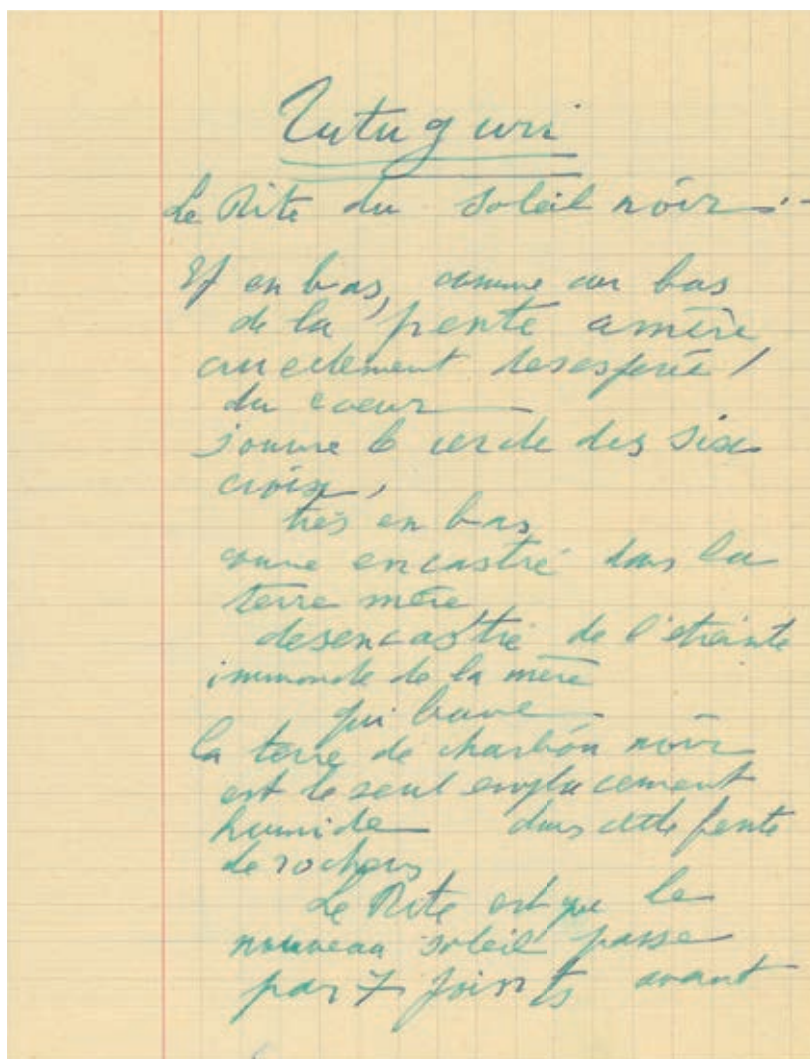 Tutuguri
Le Rite du soleil noir :-
Et en bas, comme au bas
de la pente amère
cruellement desesperée
du coeur
s'ouvre le cercle des six
croix,
très en bas
comme encastré dans la
terre mère,
desencastré de l'etreinte
immonde de la mère
qui bave.
La terre de charbon noir
est le seul emplacement
humide dans cette fente
de rochers
Le Rite est que le
nouveau soleil passe
par 7 points avant